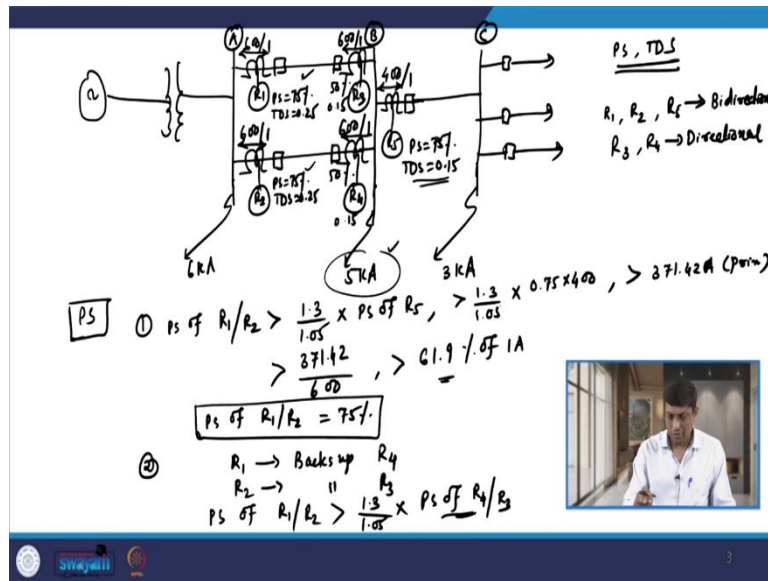 A B C
600/1 600/1
400/1
R1 PS=75% ✓ 50% R3
TDS=0.25 0.15
600/1 600/1
R5 PS=75%
TDS=0.15
R2 PS=75% ✓ 50% R4
TDS=0.25 0.15
6KA 5KA ✓ 3KA
PS, TDS
R1, R2, R5 → Bidirectional
R3, R4 → Directional
PS
① PS of R1/R2 > 1.3/1.05 × PS of R5, > 1.3/1.05 × 0.75×400, > 371.42A (Prim)
> 371.42/600, > 61.9% of 1A
PS of R1/R2 = 75%
② R1 → Backs up R4
R2 → " R3
PS of R1/R2 > 1.3/1.05 × PS of R4/R3
swayam
3